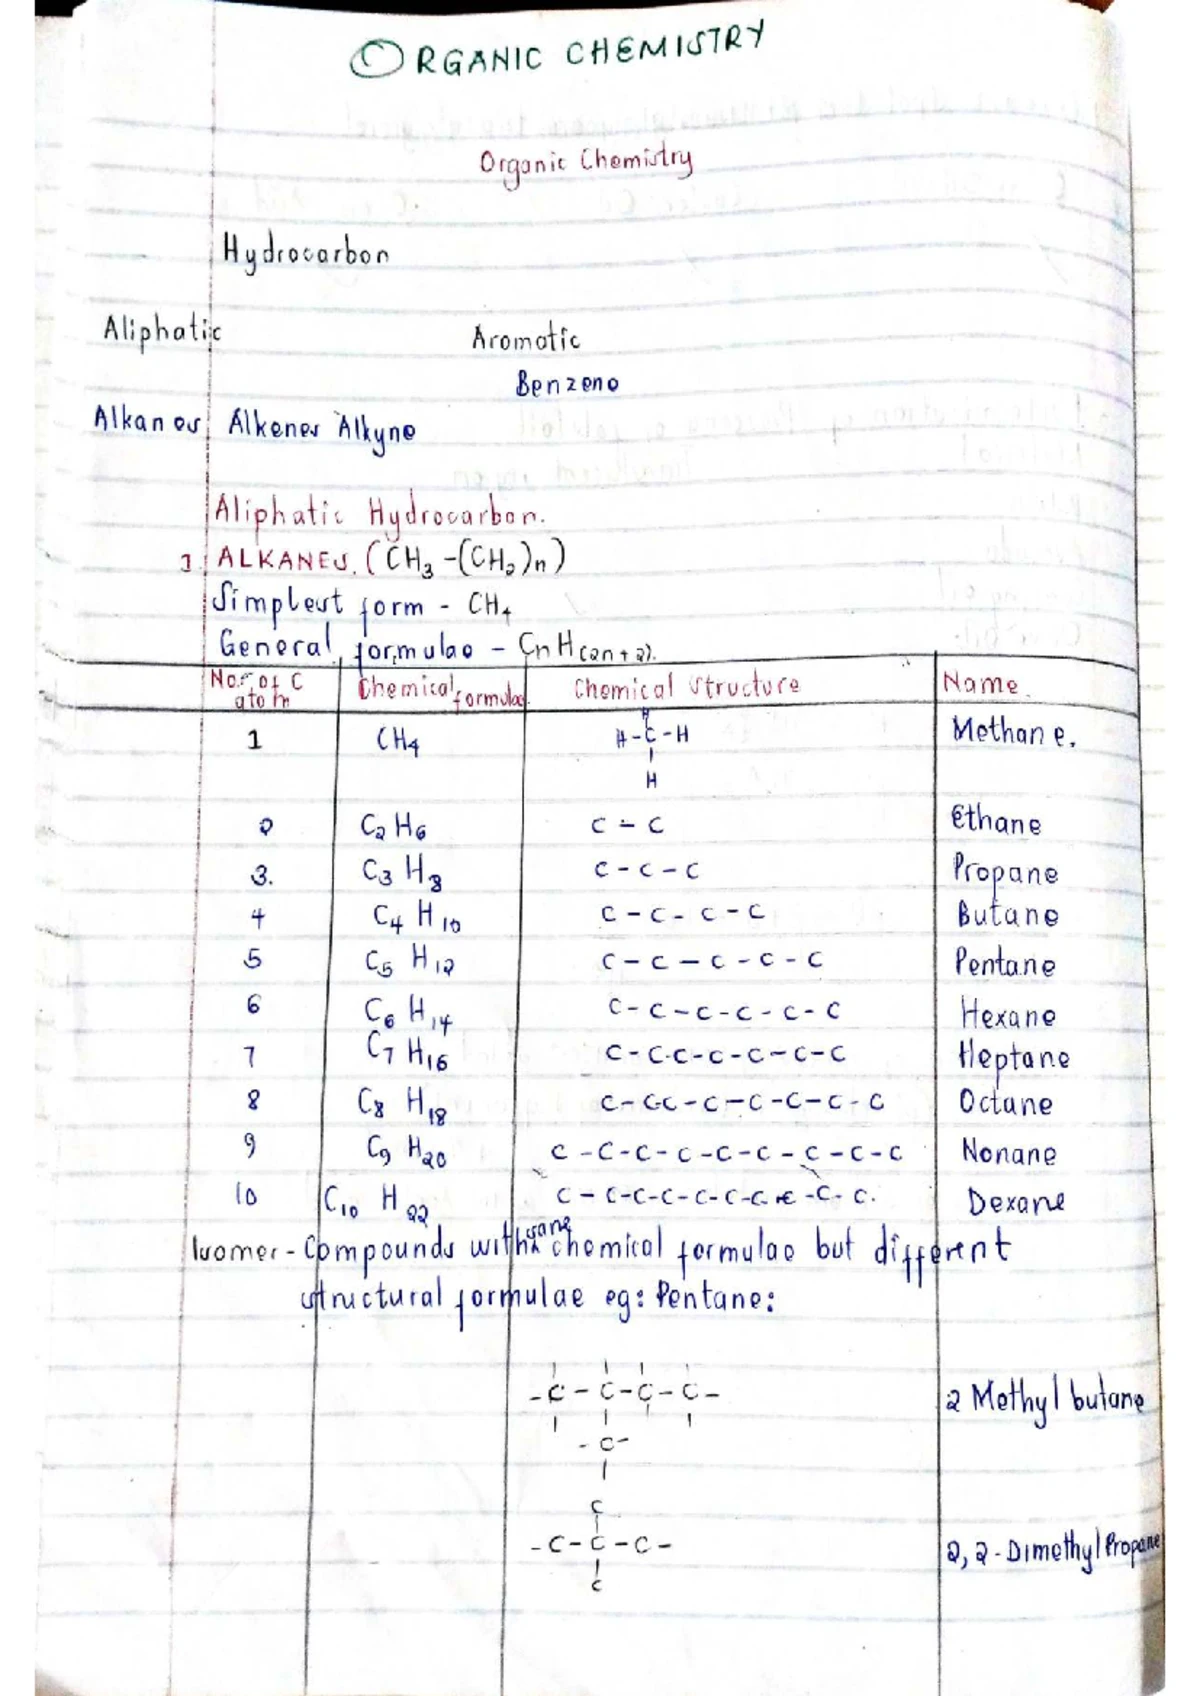 ORGANIC CHEMISTRY
Organic Chemistry
Hydrocarbon
Aliphatic Aromatic
Benzene
Alkanes Alkenes Alkyne
Aliphatic Hydrocarbon.
1. ALKANES. (CH₃-(CH₂)n)
Simplest form - CH₄
General formulae - CnH(2n+2).
No. of C atom Chemical formulae Chemical structure Name.
1 CH₄ H Methane.
H-C-H
H
2 C₂H₆ C-C Ethane
3. C₃H₈ C-C-C Propane
4 C₄H₁₀ C-C-C-C Butane
5 C₅H₁₂ C-C-C-C-C Pentane
6 C₆H₁₄ C-C-C-C-C-C Hexane
7 C₇H₁₆ C-C-C-C-C-C-C Heptane
8 C₈H₁₈ C-C-C-C-C-C-C-C Octane
9 C₉H₂₀ C-C-C-C-C-C-C-C-C Nonane
10 C₁₀H₂₂ C-C-C-C-C-C-C-C-C-C. Dexane
Isomer - Compounds with same chemical formulae but different
structural formulae eg: Pentane:
-C-C-C-C- 2 Methyl butane
-C-
C
-C-C-C- 2,2-Dimethyl Propane
C